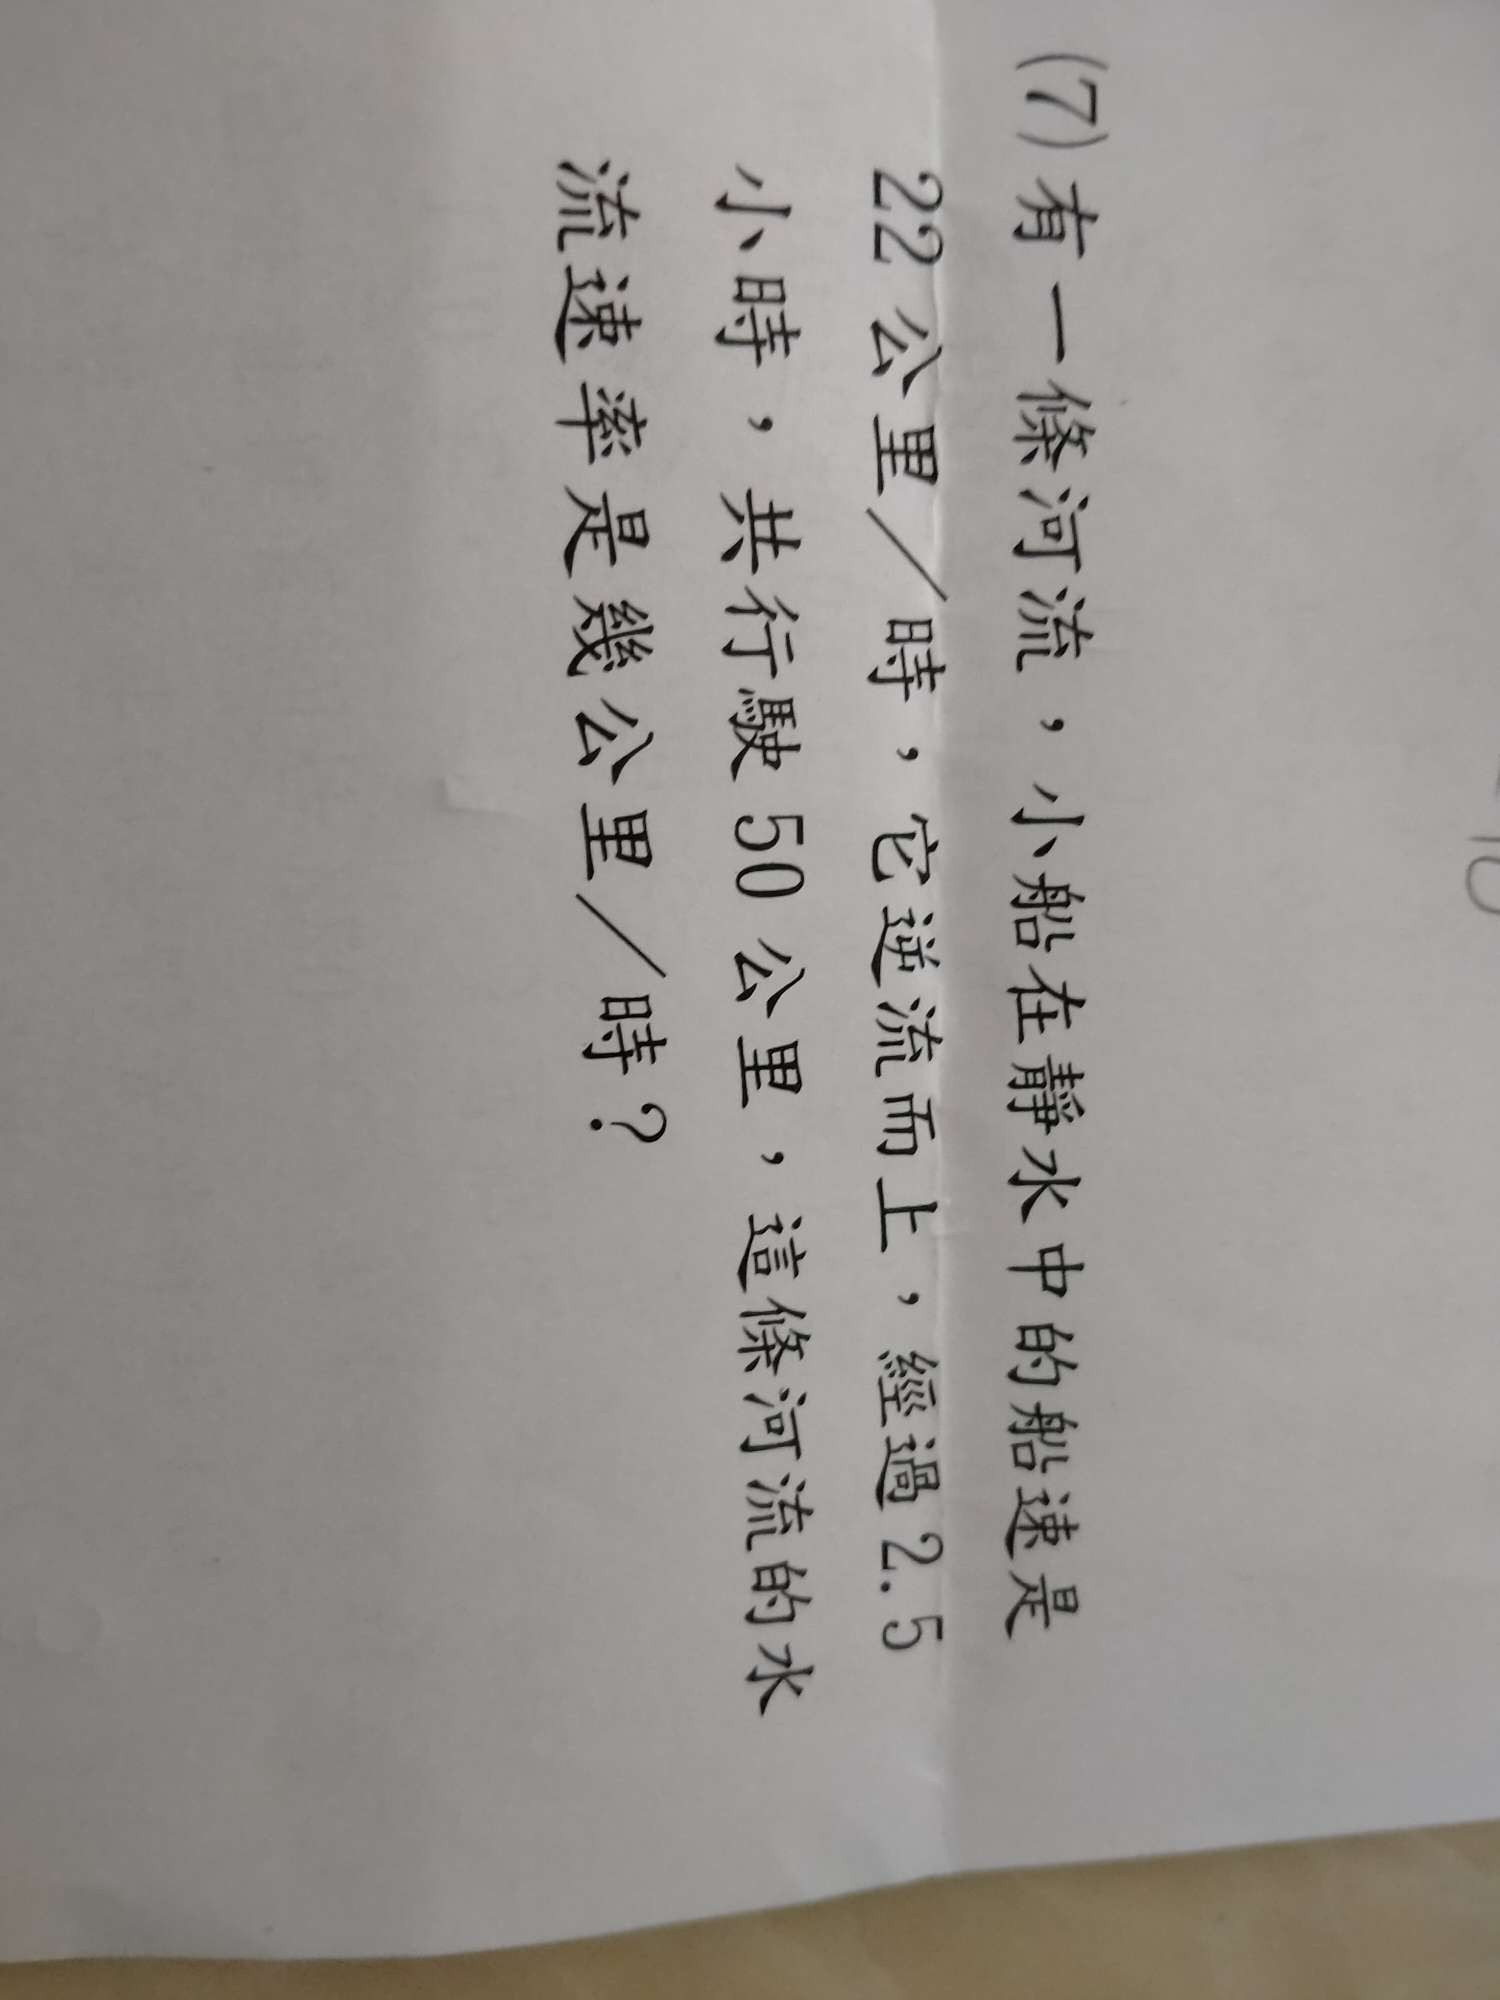 (7)有一條河流，小船在靜水中的船速是
22公里／時，它逆流而上，經過2.5
小時，共行駛50公里，這條河流的水
流速率是幾公里／時？